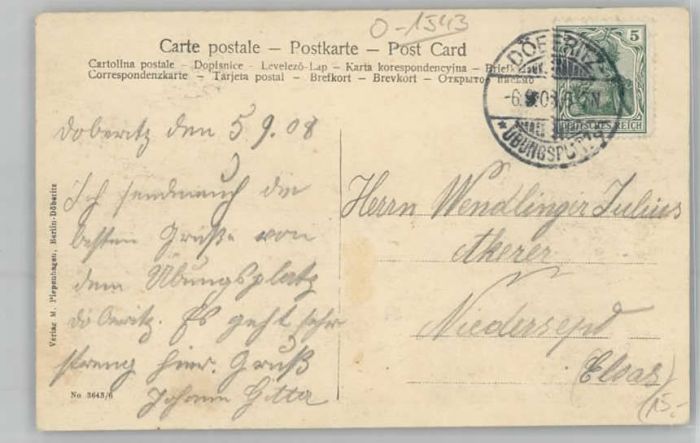 0-1543
Carte postale – Postkarte – Post Card
Cartolina postale – Dopisnice – Levelező-Lap – Karta korespondencyjna – Briefk
Correspondenzkarte – Tarjeta postal – Brefkort – Brevkort – Открытое письмо
DÖBERITZ
-6.9.08
ÜBUNGSPLATZ
5
DEUTSCHES REICH
Doberitz den 5 9. 08
Ich send euch die
besten Grüße von
dem Übungsplatz
döberitz. Es geht sehr
streng hier. Gruß
Johann
Herrn Wendlinger Julius
Akerer
Niedersept
(Elsas)
15.-
Verlag M. Piepenhagen, Berlin-Döberitz
No 3643/6